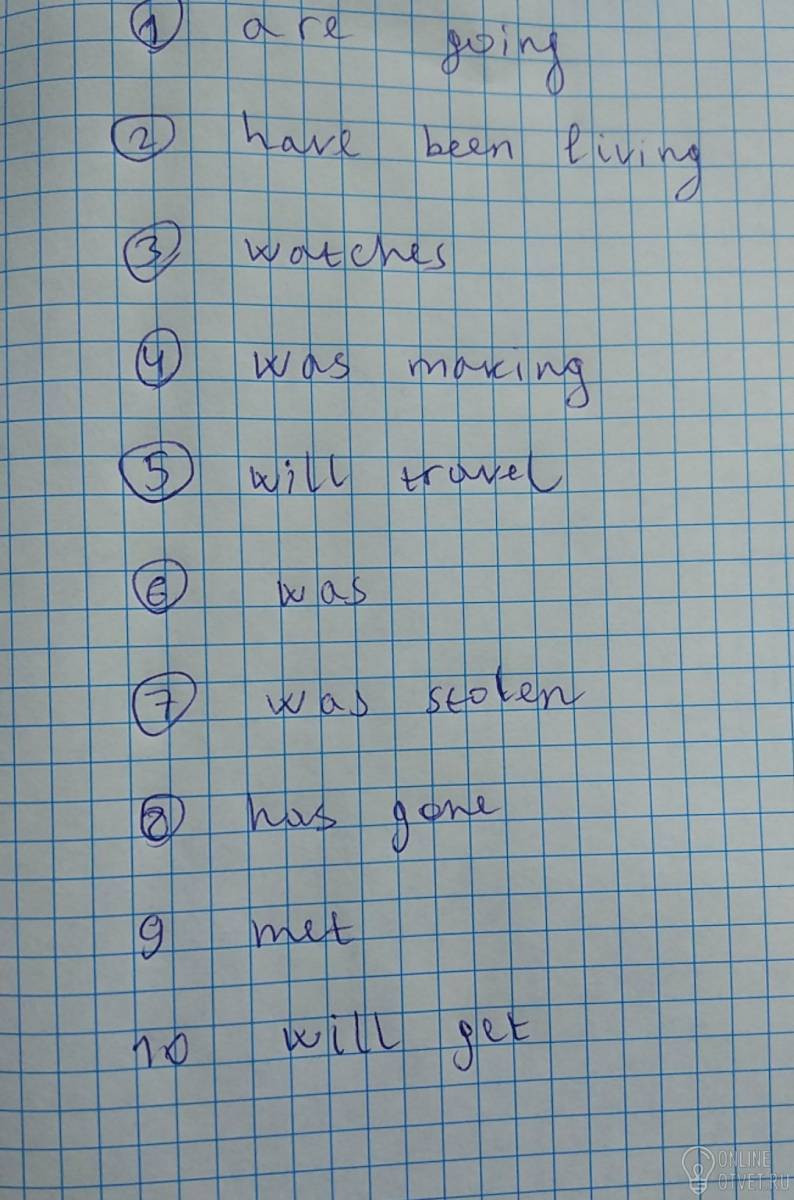 1 are going
2 have been living
3 watches
4 was making
5 will travel
6 was
7 was stolen
8 has gone
9 met
10 will get
ONLINE
OTVET.RU